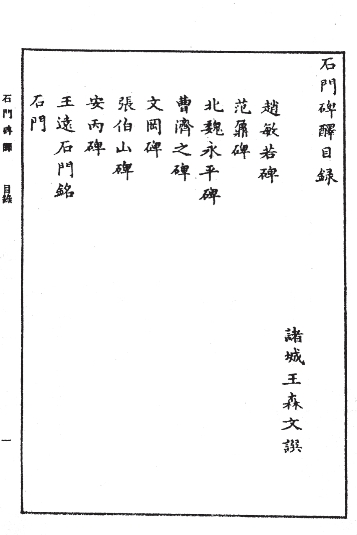 石門碑醳目錄
諸城王森文譔
趙敏若碑
范鼐碑
北魏永平碑
曹濟之碑
文岡碑
張伯山碑
安丙碑
王遠石門銘
石門
石門碑醳 目錄
一